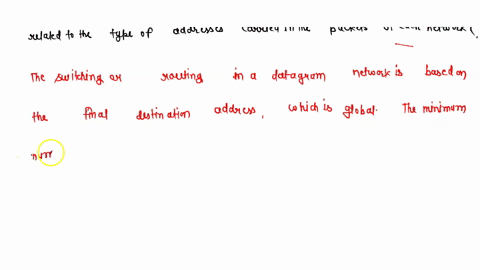 related to the type of addresses carried in the packets of each network
The switching or routing in a datagram network is based on
the final destination address, which is global. The minimum